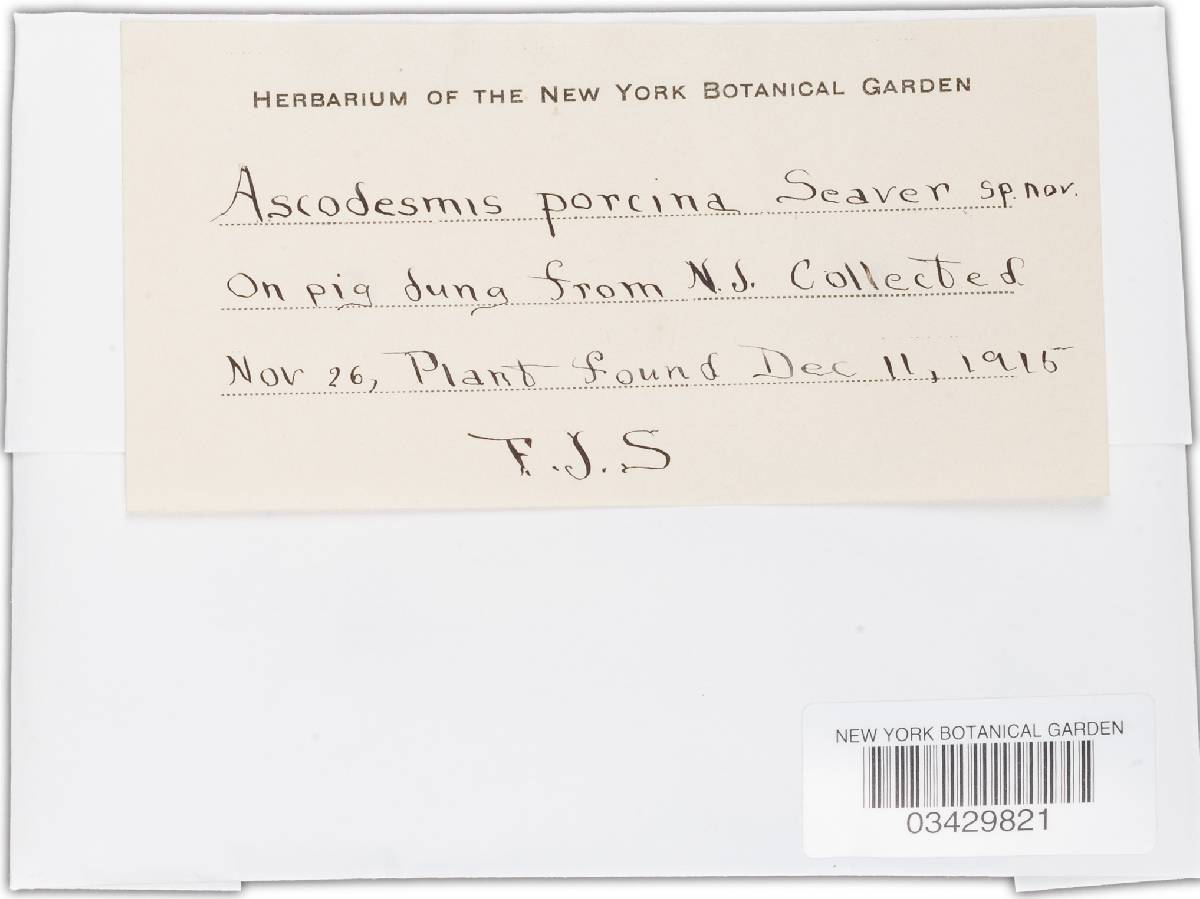 HERBARIUM OF THE NEW YORK BOTANICAL GARDEN
Ascodesmis porcina Seaver sp. nov.
On pig dung from N.J. Collected
Nov 26, Plant found Dec 11, 1915
F.J.S
NEW YORK BOTANICAL GARDEN
03429821